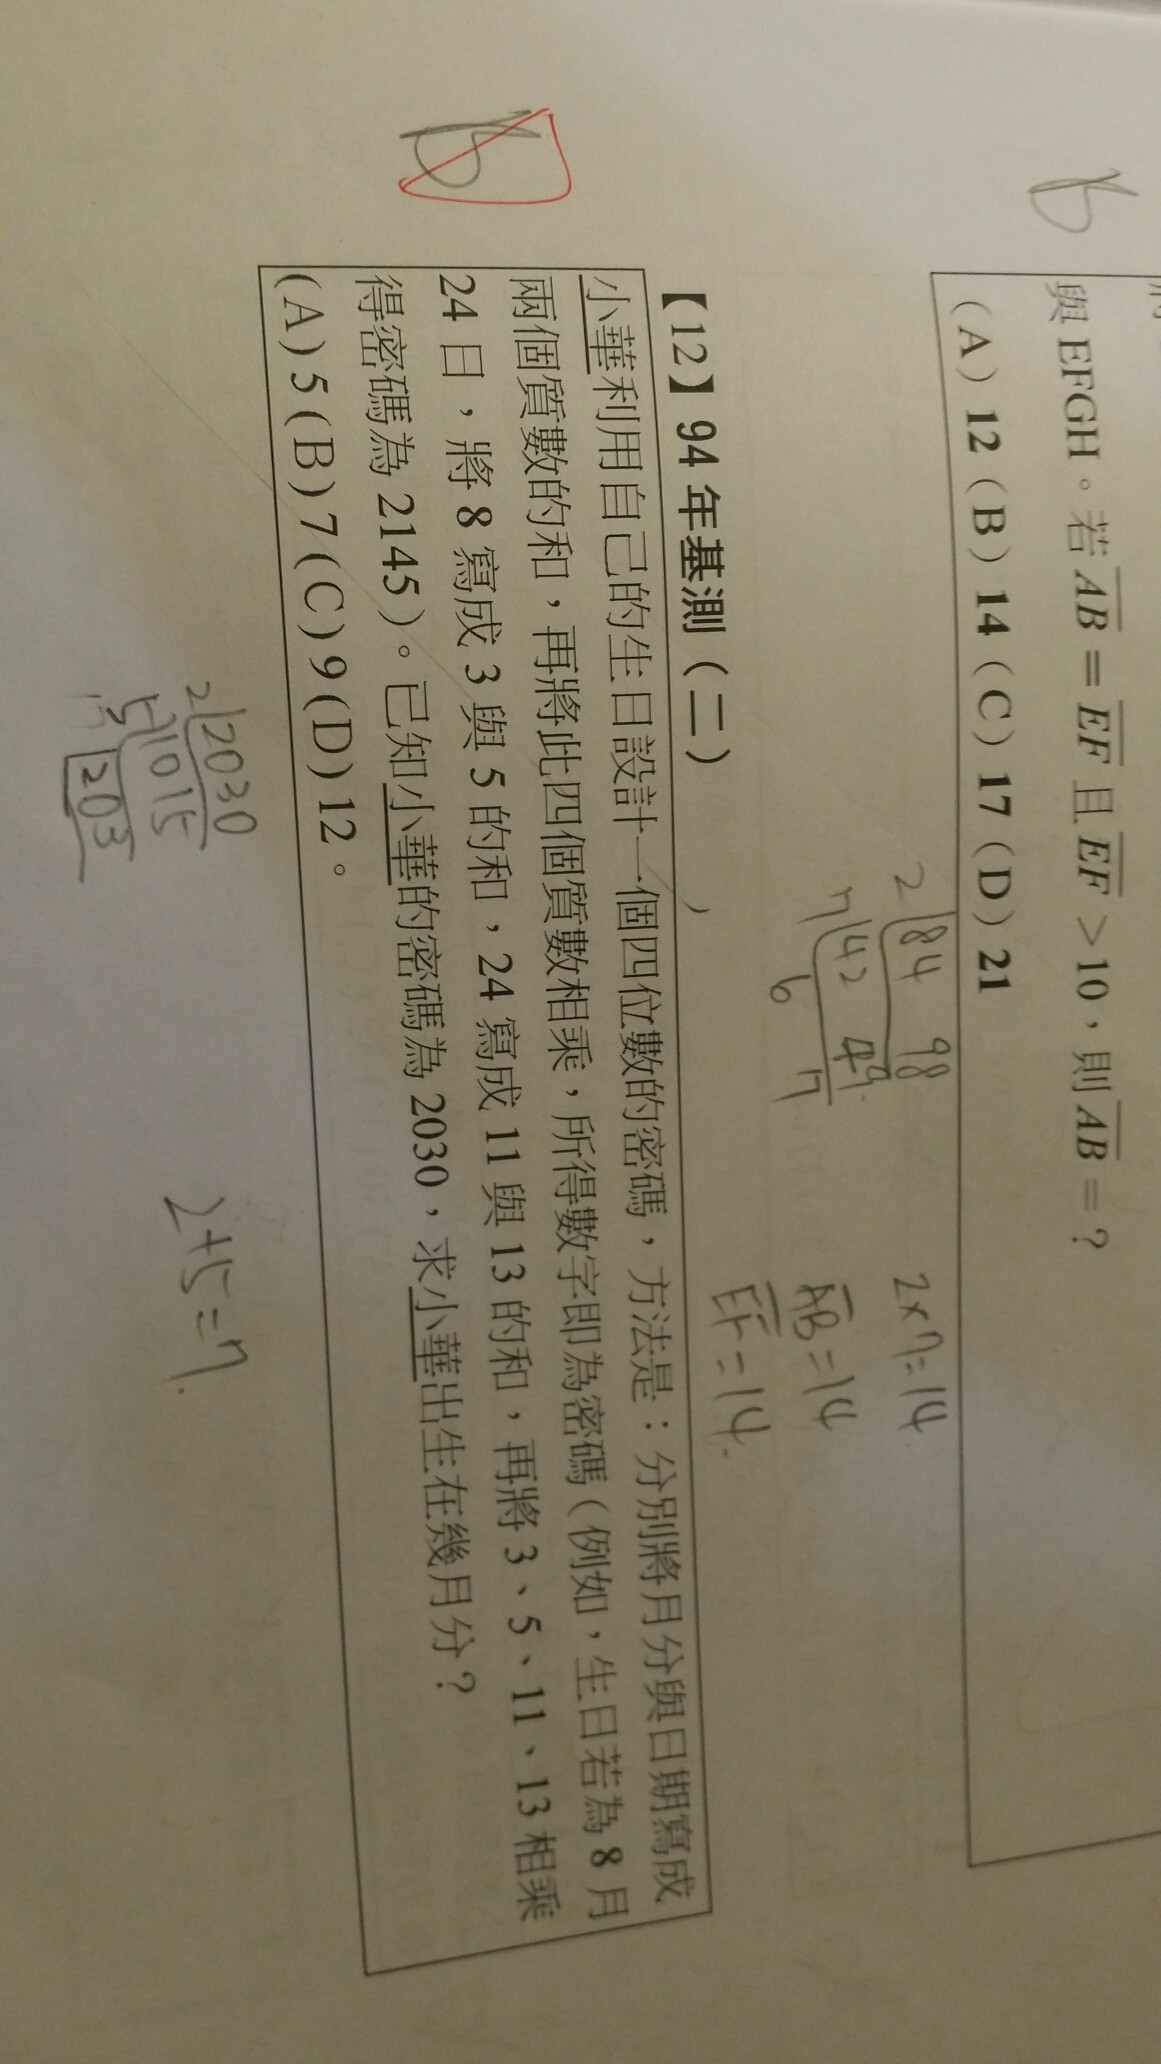 與 EFGH。若 AB = EF 且 EF >10，則 AB = ?
(A) 12 (B) 14 (C) 17 (D) 21
B
2 84 98
7 42 49
6 7
2×7=14
AB=14
EF=14.
【12】94 年基測(二)
小華利用自己的生日設計一個四位數的密碼，方法是：分別將月分與日期寫成
兩個質數的和，再將此四個質數相乘，所得數字即為密碼(例如，生日若為 8 月
24 日，將 8 寫成 3 與 5 的和，24 寫成 11 與 13 的和，再將 3、5、11、13 相乘
得密碼為 2145)。已知小華的密碼為 2030，求小華出生在幾月分？
(A) 5 (B) 7 (C) 9 (D) 12。
B
2 2030
5 1015
203
2+5=7.